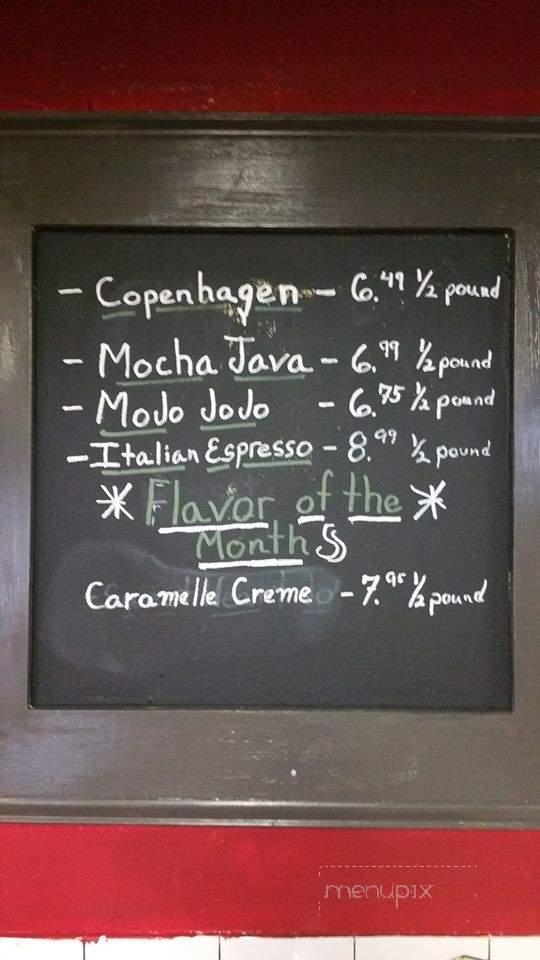 - Copenhagen - 6.49 1/2 pound
- Mocha Java - 6.99 1/2 pound
- MoJo JoJo - 6.75 1/2 pound
- Italian Espresso - 8.99 1/2 pound
* Flavor of the *
Months
Caramelle Creme - 7.95 1/2 pound
menupix